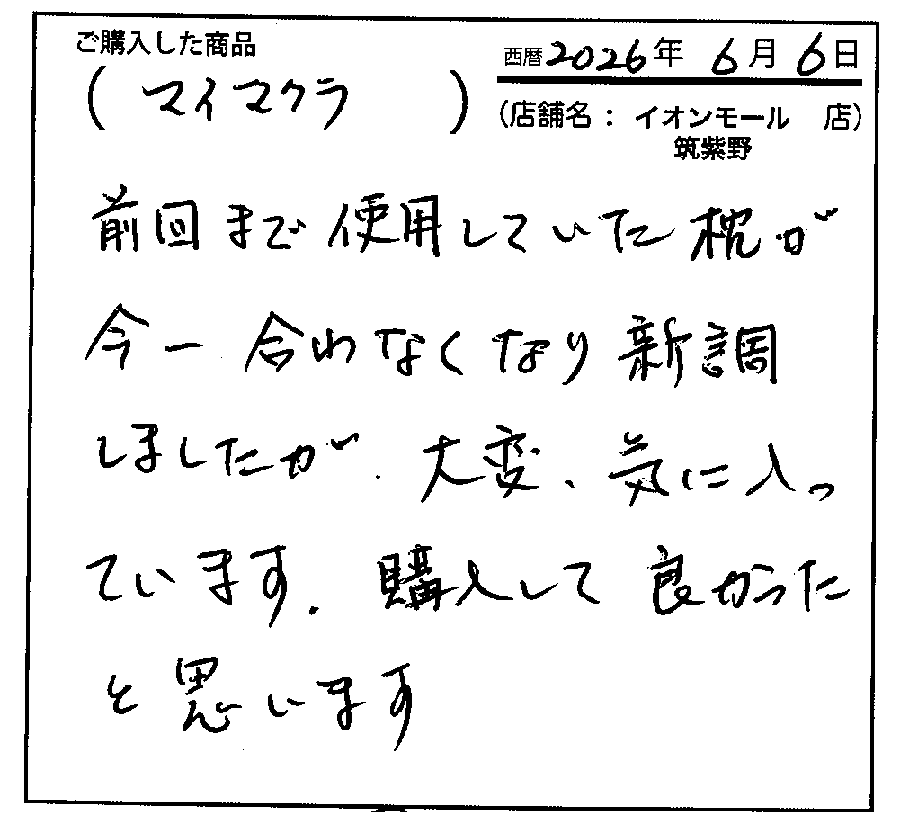 ご購入した商品
(マイマクラ)
西暦2026年6月6日
(店舗名：イオンモール 店)
筑紫野
前回まで使用していた枕が
今一合わなくなり新調
しましたが、大変、気に入っ
ています。購入して良かった
と思います